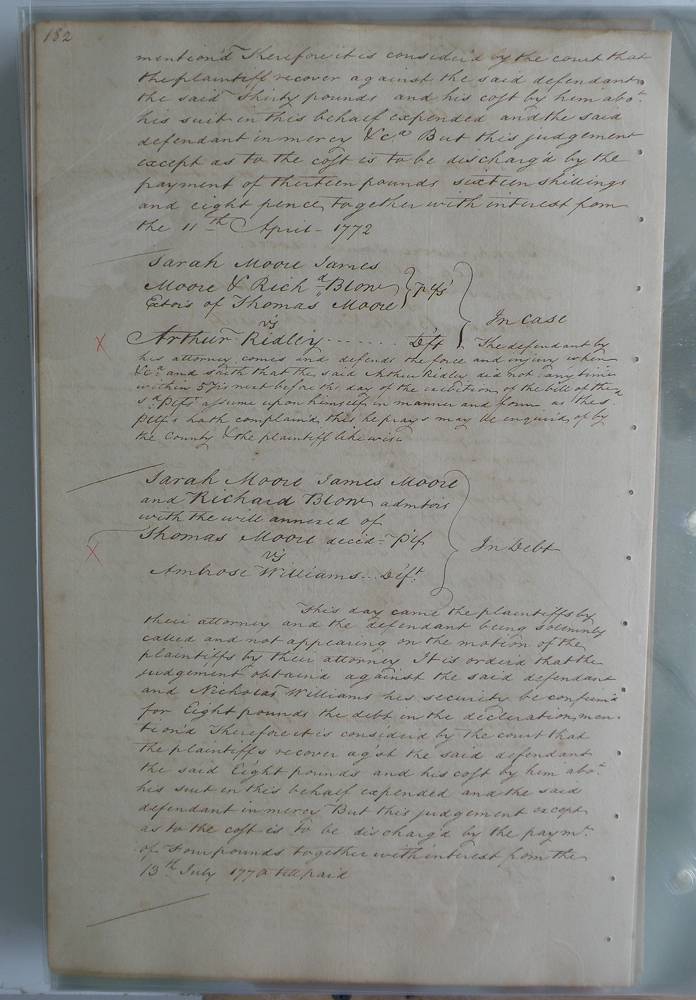 182
mention'd Therefore it is consider'd by the court that
the plaintiff recover against the said defendant
the said Thirty pounds and his cost by him abot.
his suit in this behalf expended and the said
defendant in mercy &ca But this judgement
except as to the cost is to be discharg'd by the
payment of thirteen pounds sixteen shillings
and eight pence together with interest from
the 11th April - 1772
Sarah Moore James
Moore & Richd Blow
Exors of Thomas Moore
pltfs
vs
In Case
Arthur Ridley ........ Dft
The defendant by
his attorney comes and defends the force and injury when
&ca and saith that the said Arthur Ridley did not any time
within 5 yrs next before the day of the of the bill of the
sd Pltfs assume upon himself in manner and form as the sd
pltfs hath complain'd this he prays may be enquir'd of by
the County & the plaintiff likewise
Sarah Moore James Moore
and Richard Blow admtors
with the will annexed of
Thomas Moore decd - Plf
vs
In Debt
Ambrose Williams .. Dift.
This day came the plaintiffs by
their attorney and the defendant being solemnly
called and not appearing on the motion of the
plaintiffs by their attorney It is order'd that the
judgement obtain'd against the said defendant
and Nicholas Williams his security be confirm'd
for Eight pounds the debt in the declaration men-
tion'd Therefore it is consider'd by the court that
the plaintiffs recover agst the said defendant
the said Eight pounds and his cost by him abot.
his suit in this behalf expended and the said
defendant in mercy But this judgement except
as to the cost is to be discharg'd by the paymt.
of Four pounds together with interest from the
13th July 1770 till paid